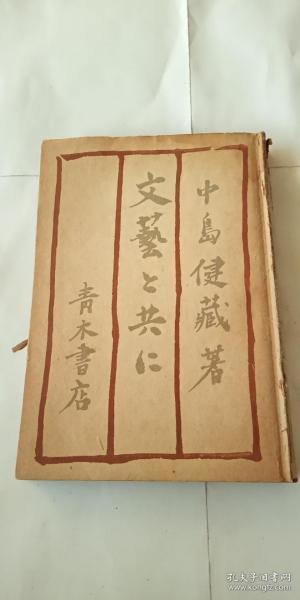 中島健藏著
文藝と共に
青木書店
孔夫子旧书网
www.kongfz.com